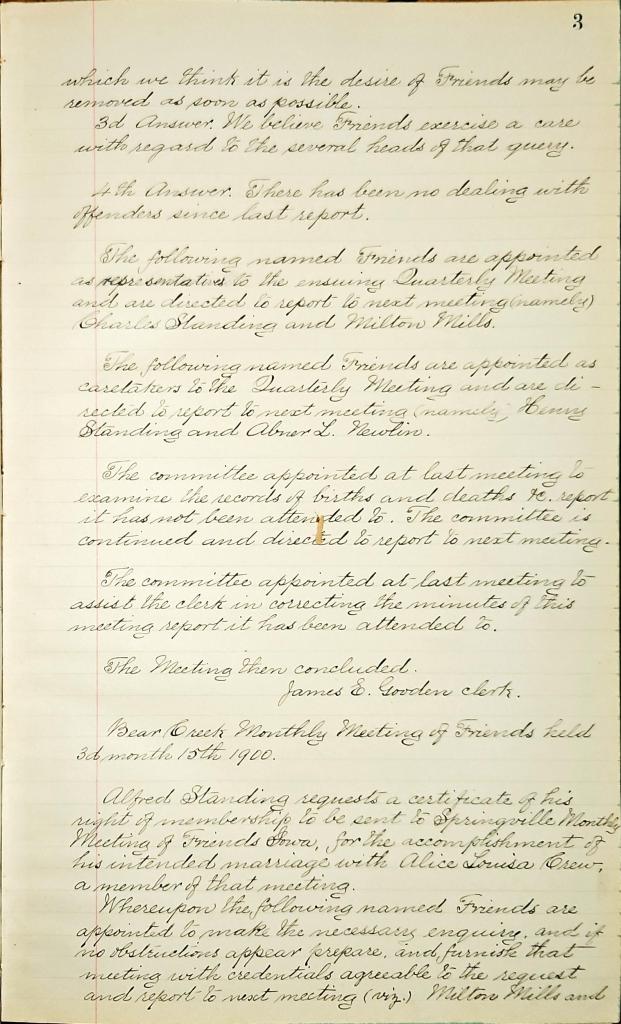 3
which we think it is the desire of Friends may be
removed as soon as possible.
3d Answer. We believe Friends exercise a care
with regard to the several heads of that query.
4th Answer. There has been no dealing with
offenders since last report.
The following named Friends are appointed
as representatives to the ensuing Quarterly Meeting
and are directed to report to next meeting (namely)
Charles Standing and Milton Mills.
The following named Friends are appointed as
caretakers to the Quarterly Meeting and are di-
rected to report to next meeting (namely) Henry
Standing and Abner L. Newlin.
The committee appointed at last meeting to
examine the records of births and deaths &c. report
it has not been attended to. The committee is
continued and directed to report to next meeting.
The committee appointed at last meeting to
assist the clerk in correcting the minutes of this
meeting report it has been attended to.
The Meeting then concluded.
James E. Gooden clerk.
Bear Creek Monthly Meeting of Friends held
3d month 15th 1900.
Alfred Standing requests a certificate of his
right of membership to be sent to Springville Monthly
Meeting of Friends Iowa, for the accomplishment of
his intended marriage with Alice Louisa Crew,
a member of that meeting.
Whereupon the following named Friends are
appointed to make the necessary enquiry, and if
no obstructions appear prepare, and furnish that
meeting with credentials agreeable to the request
and report to next meeting (viz.) Milton Mills and